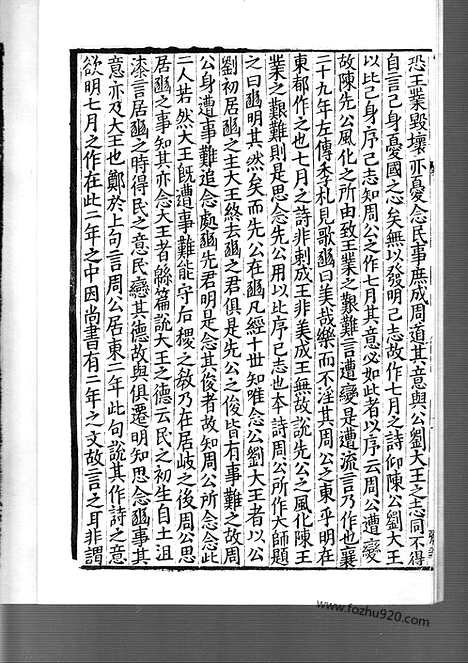 恐王業毀壞亦憂念民事庶成周道其意與公劉大王之志同不得
自言己身憂國之心矣無以發明己志故作七月之詩仰陳公劉大王
以比己身序己志知周公之作七月其意必如此者以序云周公遭變
故陳先公風化之所由致王業之艱難言遭變是遭流言乃作也襄
二十九年左傳季札見歌豳曰美哉樂而不淫其周公之東乎明在
東都作之也七月之詩非刺成王非美成王無故說先公之風化陳王
業之艱難則是思念先公用以比序己志也本詩周公所作大師題
之曰豳明其然矣而先公在豳凡經十世知唯念公劉大王者以公
劉初居豳之主大王終去豳之君俱是先公之俊皆有事難之故周
公身遭事難追念處豳先君明是念其俊者故知周公所念念此
二人若然大王既遭事難能守后稷之敎乃在居岐之後周公思
居豳之事知其亦念大王者緜篇說大王之德云民之初生自土沮
漆言居豳之時得民之意民戀其德故與俱遷明知思念豳事其
意亦及大王也鄭於上句言周公居東二年此句說其作詩之意
欲明七月之作在此二年之中因尚書有二年之文故言之耳非謂
www.fozhu920.com